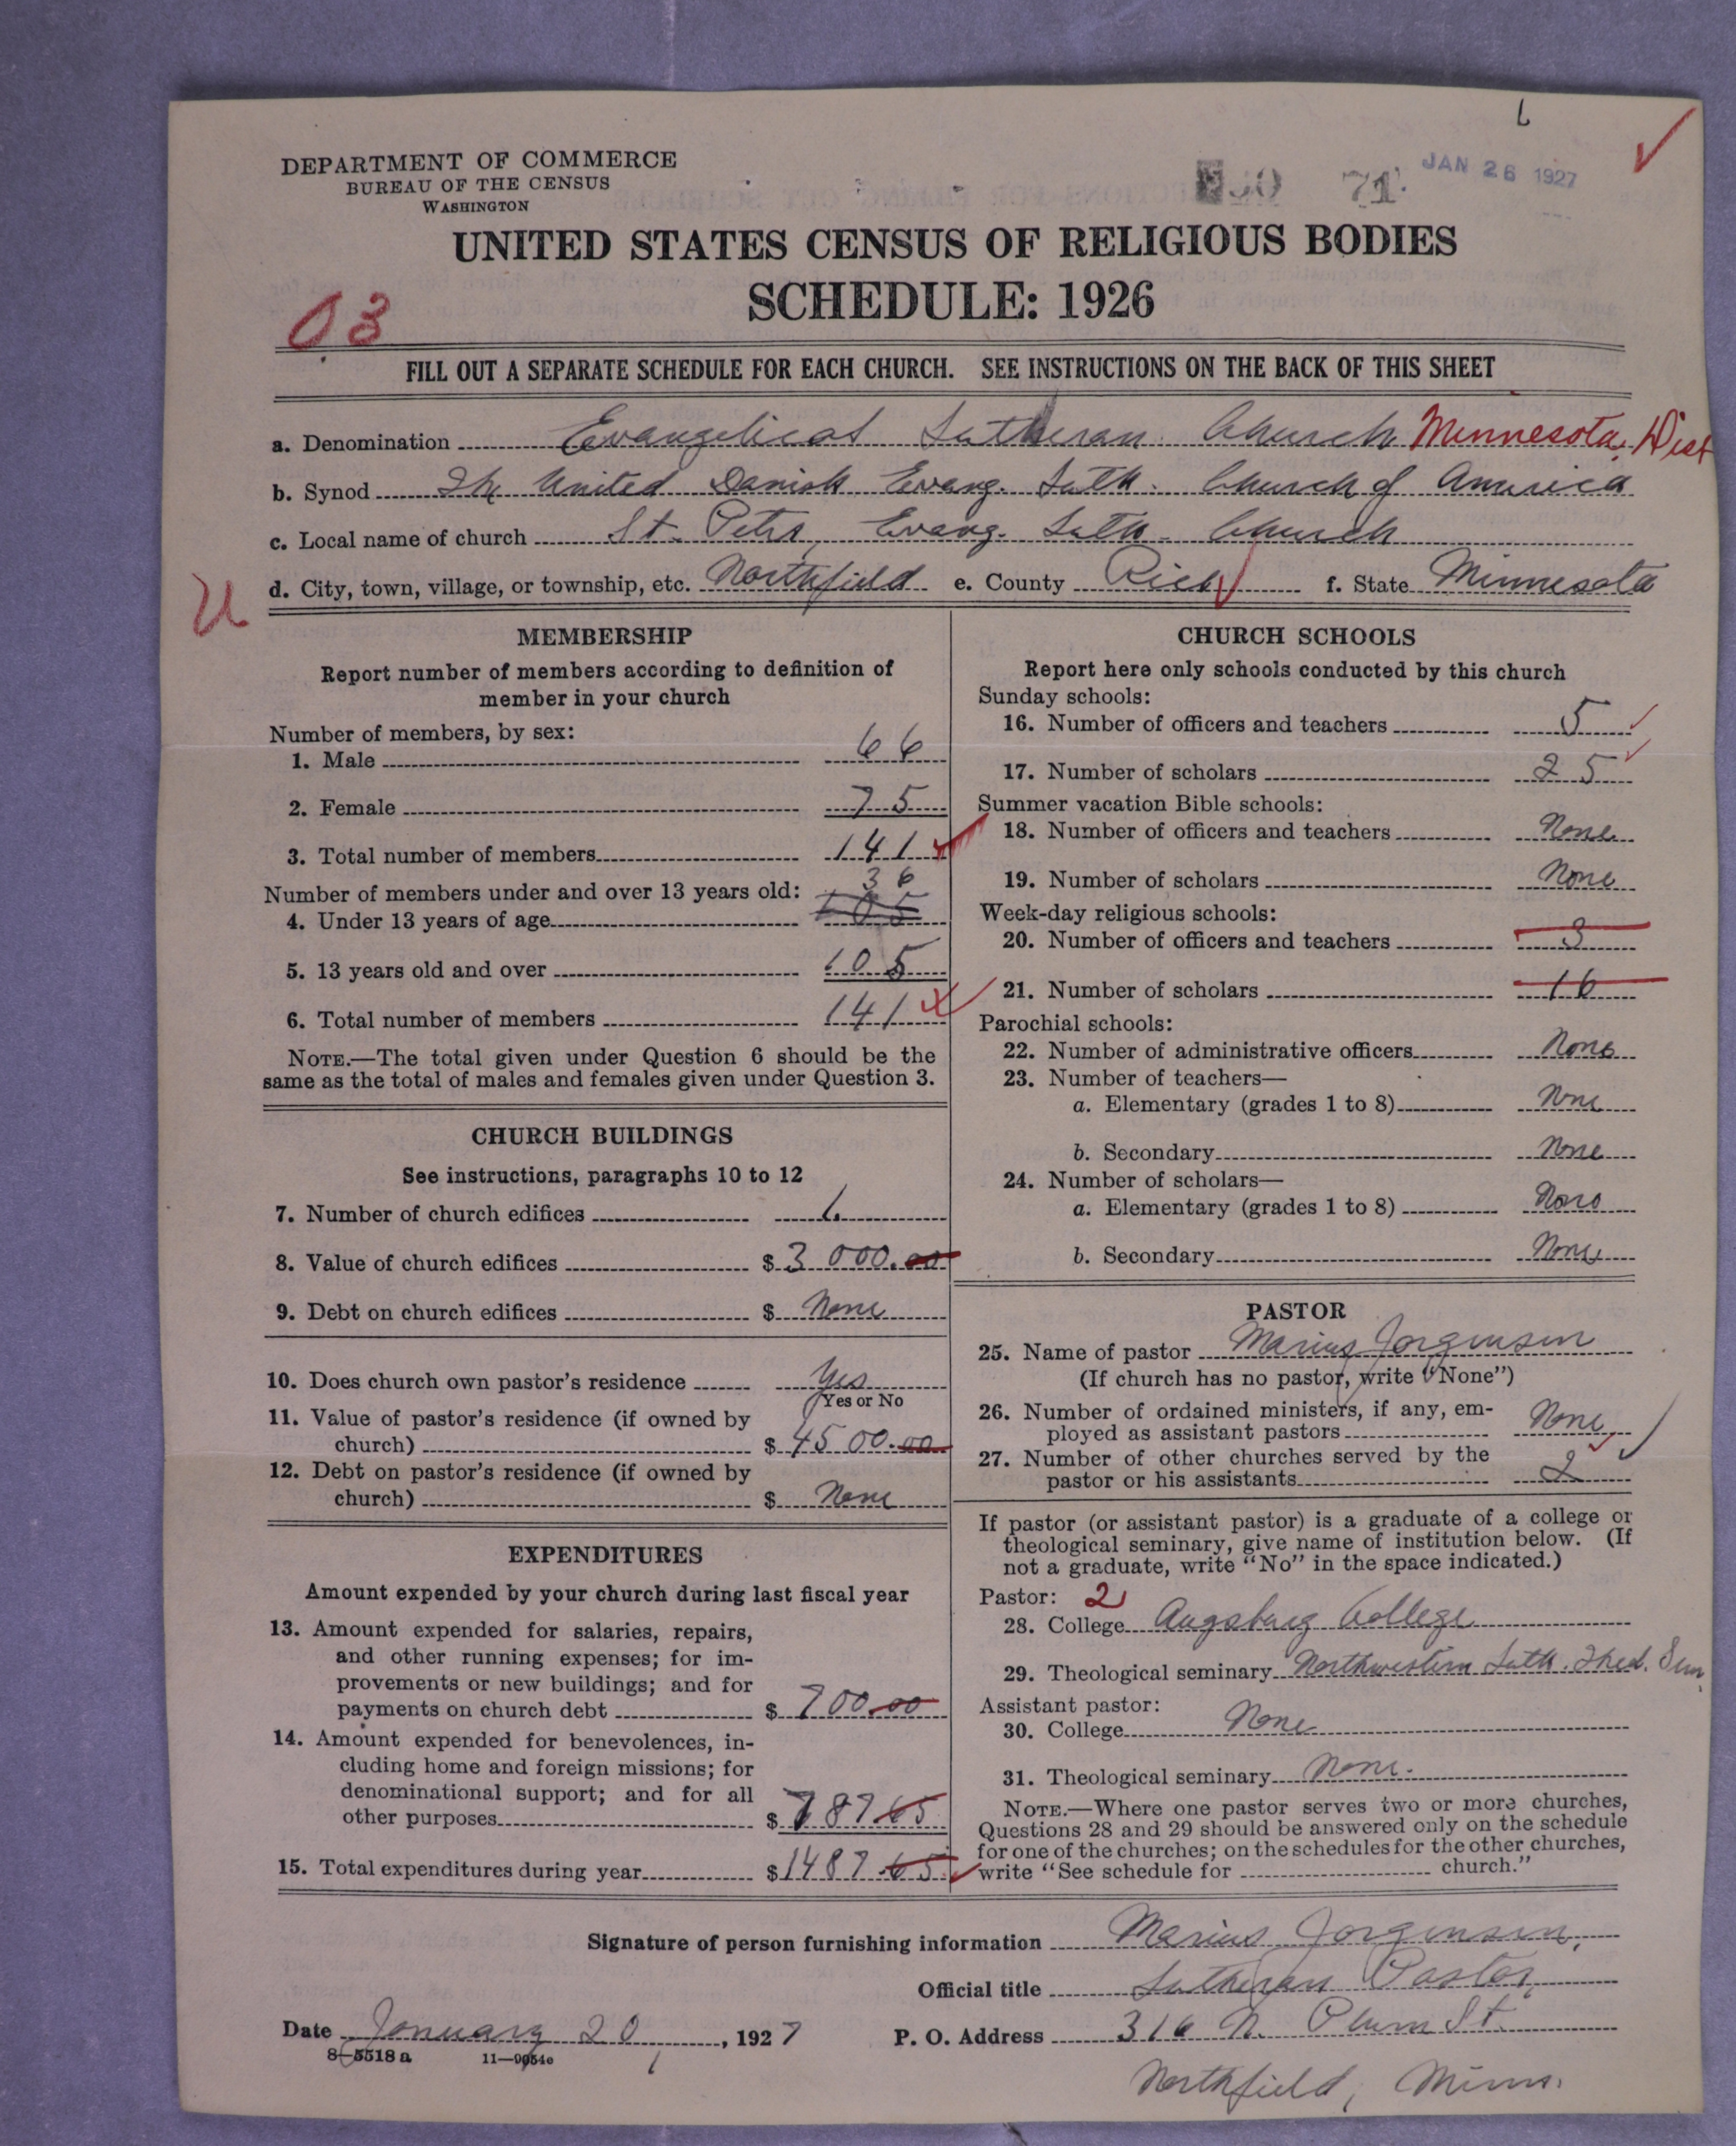 6
DEPARTMENT OF COMMERCE
BUREAU OF THE CENSUS
WASHINGTON
71. JAN 26 1927
UNITED STATES CENSUS OF RELIGIOUS BODIES
SCHEDULE: 1926
03
FILL OUT A SEPARATE SCHEDULE FOR EACH CHURCH. SEE INSTRUCTIONS ON THE BACK OF THIS SHEET
a. Denomination Evangelical Lutheran Church Minnesota Dist
b. Synod The United Danish Evang. Luth. Church of America
c. Local name of church St. Peters Evang. Luth. Church
d. City, town, village, or township, etc. Northfield e. County Rice f. State Minnesota
U
MEMBERSHIP
Report number of members according to definition of
member in your church
Number of members, by sex:
1. Male 66
2. Female 75
3. Total number of members 141
Number of members under and over 13 years old: 36
4. Under 13 years of age 105
5. 13 years old and over 105
6. Total number of members 141
NOTE.—The total given under Question 6 should be the
same as the total of males and females given under Question 3.
CHURCH BUILDINGS
See instructions, paragraphs 10 to 12
7. Number of church edifices 1
8. Value of church edifices $3000.00
9. Debt on church edifices $ None
10. Does church own pastor's residence Yes
Yes or No
11. Value of pastor's residence (if owned by
church) $4500.00
12. Debt on pastor's residence (if owned by
church) $ None
EXPENDITURES
Amount expended by your church during last fiscal year
13. Amount expended for salaries, repairs,
and other running expenses; for im-
provements or new buildings; and for
payments on church debt $700.00
14. Amount expended for benevolences, in-
cluding home and foreign missions; for
denominational support; and for all
other purposes $787.65
15. Total expenditures during year $1487.65
CHURCH SCHOOLS
Report here only schools conducted by this church
Sunday schools:
16. Number of officers and teachers 5
17. Number of scholars 25
Summer vacation Bible schools:
18. Number of officers and teachers None
19. Number of scholars None
Week-day religious schools:
20. Number of officers and teachers 3
21. Number of scholars 16
Parochial schools:
22. Number of administrative officers None
23. Number of teachers—
a. Elementary (grades 1 to 8) None
b. Secondary None
24. Number of scholars—
a. Elementary (grades 1 to 8) None
b. Secondary None
PASTOR
25. Name of pastor Marius Jorgensen
(If church has no pastor, write "None")
26. Number of ordained ministers, if any, em-
ployed as assistant pastors None
27. Number of other churches served by the
pastor or his assistants 2
If pastor (or assistant pastor) is a graduate of a college or
theological seminary, give name of institution below. (If
not a graduate, write "No" in the space indicated.)
Pastor: 2
28. College Augsburg College
29. Theological seminary Northwestern Luth. Theol. Sem.
Assistant pastor:
30. College None
31. Theological seminary None.
NOTE.—Where one pastor serves two or more churches,
Questions 28 and 29 should be answered only on the schedule
for one of the churches; on the schedules for the other churches,
write "See schedule for church."
Signature of person furnishing information Marius Jorgensen,
Official title Lutheran Pastor,
Date January 20, 1927 P. O. Address 316 N. Plum St.
8-5518 a 11-9054e
Northfield, Minn.